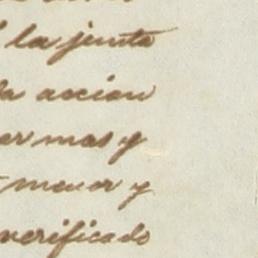 la junta
accion
mas y
menor y
verificado